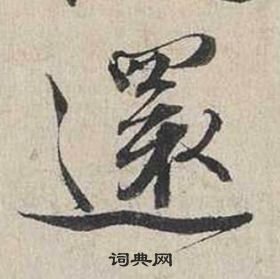 還
词典网